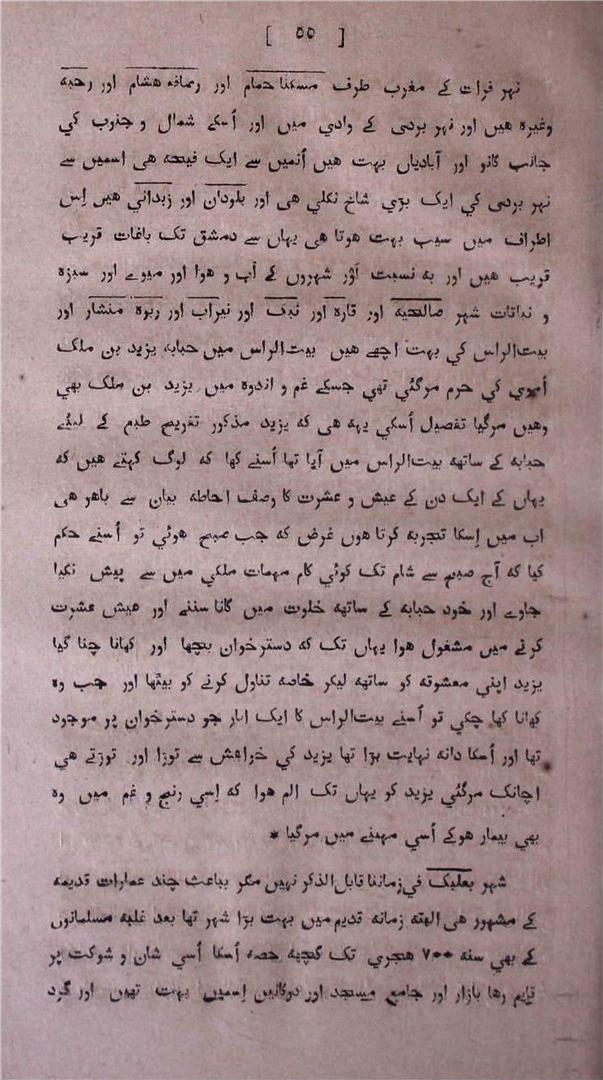 [ ٥٥ ]
نہر فرات کے مغرب طرف مسکنا حمام اور رصافہ هشام اور رحبہ
وغیرہ هیں اور نہر بردی کے وادي میں اور اُسکے شمال و جنوب کي
جانب گانو اور آبادیاں بہت هیں اُنمیں سے ایک فیحہ هی اسمیں سے
نہر بردی کي ایک بڑي شاخ نکلي هی اور بلودان اور زبداني هیں اِس
اطراف میں سیب بہت هوتا هی یہاں سے دمشق تک باغات قریب
قریب هیں اور بہ نسبت اَوْر شہروں کے آب و هوا اور میوے اور سبزہ
و نباتات شہر صالحیہ اور قارہ اور نبک اور نیراب اور ربوہ منشار اور
بیت‌الراس کي بہت اچھے هیں بیت‌الراس میں حبابہ یزید بن ملک
اُموي کي حرم مرگئي تھي جسکے غم و اندوہ میں یزید بن ملک بھي
وهیں مرگیا تفصیل اُسکي یہہ هی کہ یزید مذکور تفریح طبع کے لیئے
حبابہ کے ساتھہ بیت‌الراس میں آیا تھا اُسنے کہا کہ لوگ کہتے هیں کہ
یہاں کے ایک دن کے عیش و عشرت کا وصف احاطہ بیان سے باهر هی
اب میں اِسکا تجربہ کرتا هوں غرض کہ جب صبح هوئي تو اُسنے حکم
کیا کہ آج صبح سے شام تک کوئي کام مہمات ملکي میں سے پیش نکیا
جاوے اور خود حبابہ کے ساتھہ خلوت میں گانا سننے اور عیش عشرت
کرنے میں مشغول هوا یہاں تک کہ دسترخوان بچھا اور کھانا چنا گیا
یزید اپني معشوقہ کو ساتھہ لیکر خاصہ تناول کرنے کو بیٹھا اور جب وہ
کھانا کھا چکي تو اُسنے بیت‌الراس کا ایک انار جو دسترخوان پر موجود
تھا اور اُسکا دانہ نہایت بڑا تھا یزید کي خواهش سے توڑا اور توڑتے هي
اچانک مرگئي یزید کو یہاں تک الم هوا کہ اِسي رنج و غم میں وہ
بھي بیمار هوکے اُسي مہینے میں مرگیا *
شہر بعلبک في‌زماننا قابل‌الذکر نہیں مگر بباعث چند عمارات قدیمہ
کے مشہور هی البتہ زمانہ قدیم میں بہت بڑا شہر تھا بعد غلبہ مسلمانوں
کے بھي سنہ ٧٠٠ هجري تک کچھہ حصہ اُسکا اُسي شان و شوکت پر
قایم رها بازار اور جامع مسجد اور دوکانیں اِسمیں بہت تھیں اور گرد